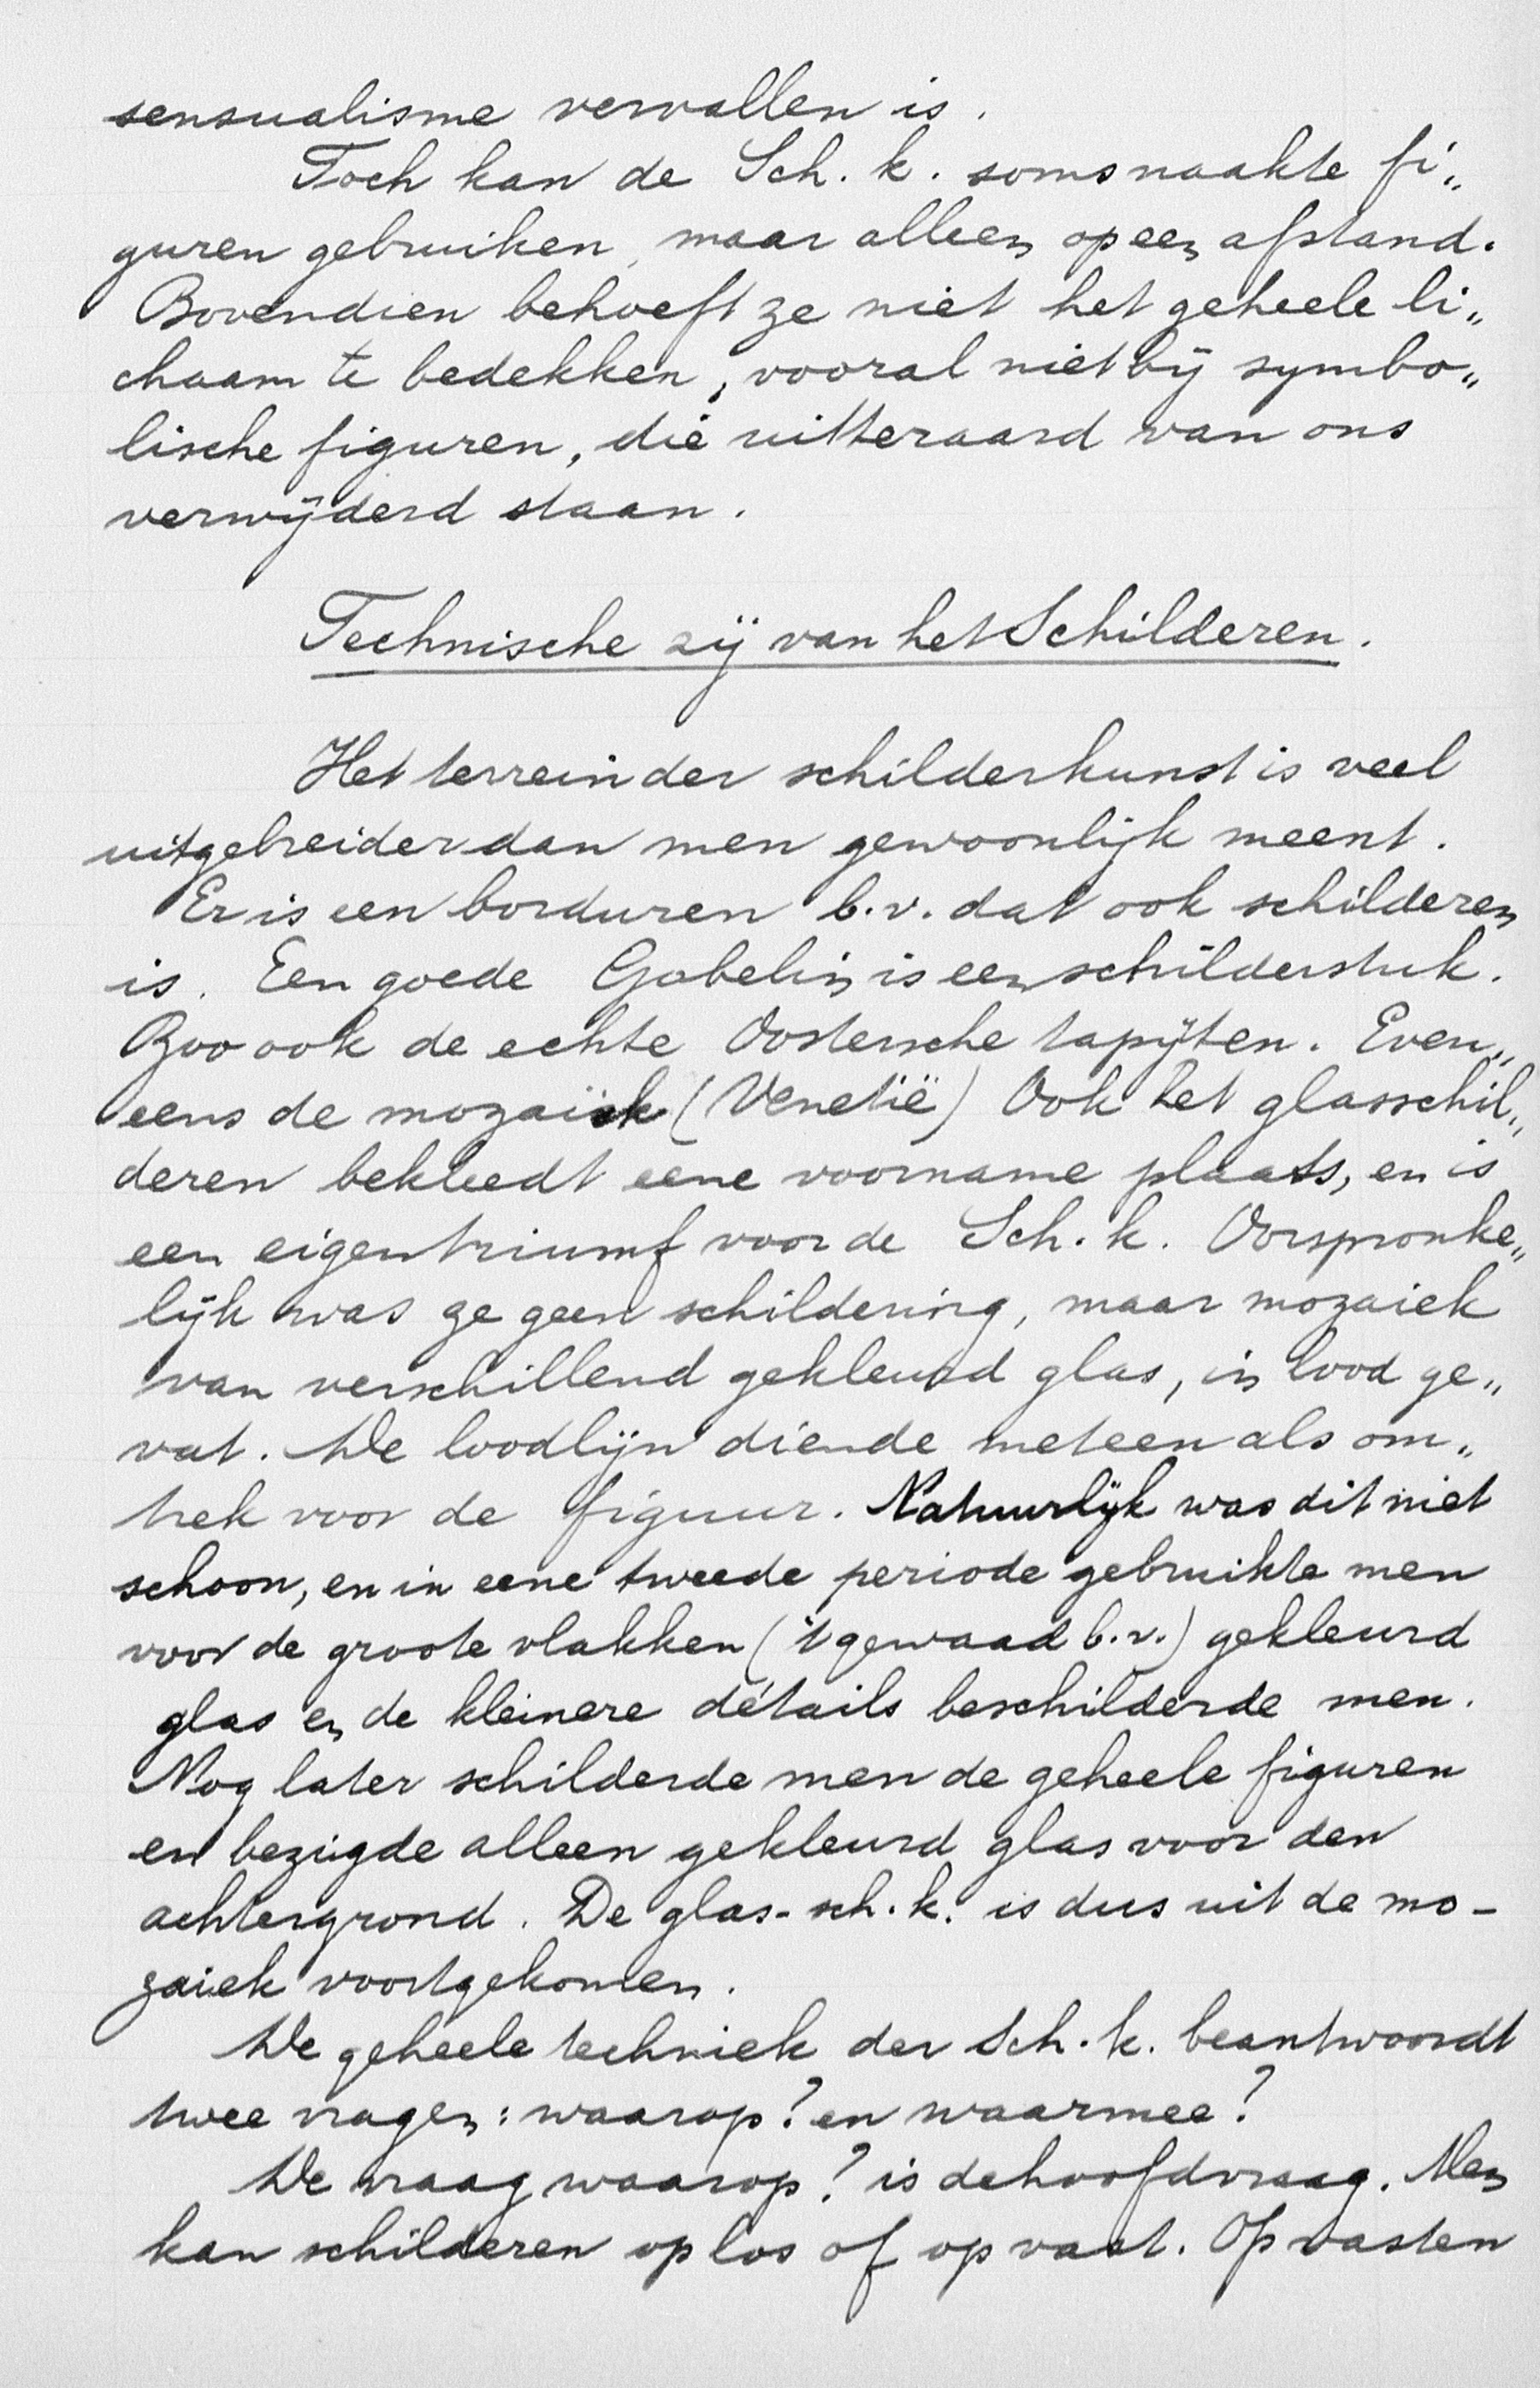 sensualisme vervallen is.
Toch kan de Sch. k. soms naakte fi„
guren gebruiken, maar alleen op een afstand.
Bovendien behoeft ze niet het geheele li„
chaam te bedekken, vooral niet bij symbo„
lische figuren, die uitteraard van ons
verwijderd staan.
Technische zij van het Schilderen.
Het terrein der schilderkunst is veel
uitgebreider dan men gewoonlijk meent.
Er is een borduren b.v. dat ook schilderen
is. Een goede Gobelin is een schilderstuk.
Zoo ook de echte Oostersche tapijten. Even„
eens de mozaïek (Venetië) Ook het glasschil„
deren bekleedt eene voorname plaats, en is
een eigen triumf voor de Sch. k. Oorspronke„
lijk was ze geen schildering, maar mozaiek
van verschillend gekleurd glas, in lood ge„
vat. De loodlijn diende meteen als om„
trek voor de figuur. Natuurlijk was dit niet
schoon, en in eene tweede periode gebruikte men
voor de groote vlakken ('t gewaad b.v.) gekleurd
glas en de kleinere détails beschilderde men.
Nog later schilderde men de geheele figuren
en bezigde alleen gekleurd glas voor den
achtergrond. De glas-sch.k. is dus uit de mo-
zaiek voortgekomen.
De geheele techniek der Sch. k. beantwoordt
twee vragen: waarop? en waarmee?
De vraag waarop? is de hoofdvraag. Men
kan schilderen op los of op vast. Op vasten